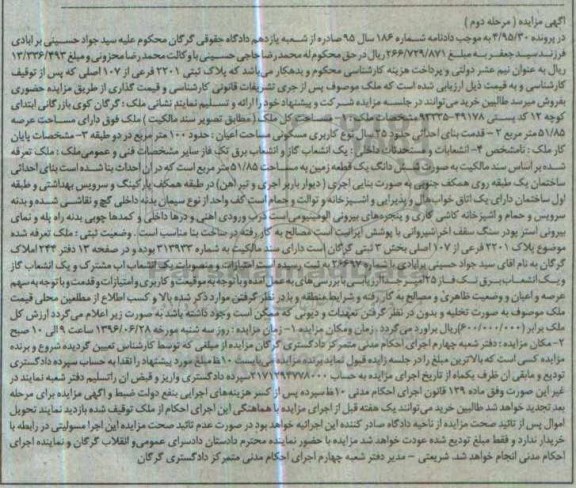 آگهی مزایده ( مرحله دوم )
در پرونده ۴/۹۵/۳۰ به موجب دادنامه شماره ۱۸۶ سال ۹۵ صادره از شعبه یازدهم دادگاه حقوقی گرگان محکوم علیه سید جواد حسینی برابادی
فرزند سید جعفر به مبلغ ۲۶۶/۷۲۹/۸۷۱ ریال در حق محکوم له محمدرضا حاجی حسینی با وکالت محمدرضا محزونی و مبلغ ۱۳/۳۳۶/۴۹۳
ریال به عنوان نیم عشر دولتی و پرداخت هزینه کارشناسی محکوم و بدهکار می باشد که پلاک ثبتی ۲۲۰۱ فرعی از ۱۰۷ اصلی که پس از توقیف
کارشناسی و به قیمت ذیل ارزیابی شده است که ملک موصوف پس از جری تشریفات قانونی کارشناسی و قیمت گذاری از طریق مزایده حضوری
بفروش میرسد طالبین خرید می توانند در جلسه مزایده شرکت و پیشنهاد خود را ارائه و تسلیم نمایند نشانی ملک : گرگان کوی بازرگانی ابتدای
کوچه 12 کد پستی ۴۹۱۷۸-۹۲۳۳۵ مشخصات ملک : ۱- مساحت کل ملک ( مطابق تصویر سند مالکیت ) ملک فوق دارای مساحت عرصه
۵۱/۸۵ متر مربع ۲- قدمت بنای احداثی حدود ۲۵ سال نوع کاربری مسکونی مساحت اعیان : حدود ۱۰۰ متر مربع در دو طبقه ۳- مشخصات پایان
کار ملک : نامشخص ۴- انشعابات و مستحدثات داخلی : یک انشعاب گاز و انشعاب برق تک فاز سایر مشخصات فنی و عمومی ملک : ملک تعرفه
شده بر اساس سند مالکیت به صورت شش دانگ یک قطعه زمین به مساحت ۵۱/۸۵ متر مربع است که در ان احداث بنا شده است بنای احداثی
ساختمان یک طبقه روی همکف جنوبی به صورت بنایی اجری ( دیوار باربر اجری و تیر آهن) در طبقه همکف پارکینگ و سرویس بهداشتی و طبقه
اول ساختمان دارای یک اتاق خواب هال و پذیرایی و اشپزخانه و توالت و حمام است کف واحد از نوع سیمان بدنه داخلی گچ و نقاشی شده و بدنه
سرویس و حمام و اشپزخانه کاشی کاری و پنجره های بیرونی الومینیومی است درب ورودی اهنی و درها داخلی و کمدها چوبی بدنه راه پله و نمای
بیرونی استر پودر سنگ سقف اخر شیروانی با پوشش ایرانیت است مصالح به کار رفته در ساخت بنا مناسب است . وضعیت ثبتی : ملک تعرفه شده
موضوع پلاک ۲۲۰۱ فرعی از ۱۰۷ اصلی بخش ۳ ثبتی گرگان است دارای سند مالکیت به شماره ۳۱۳۹۳۳ بوده و در صفحه ۱۳ دفتر ۲۴۴ املاک
گرگان به نام آقای سید جواد حسینی برابادی با شماره به ثبت رسیده است امتیازات و منصوبات یک انشعاب اب مشترک و یک انشعاب گاز
و یک انشعاب برق تک فاز ۲۵ امپر ارزیابی با بررسی های به عمل امده و با توجه به موقعیت و کاربری و امتیازات و قدمت و با توجه به سهم
عرصه و اعیان و وضعیت ظاهری و مصالح به کار رفته و شرایط منطقه و با در نظر گرفتن موارد ذکر شده بالا و کسب اطلاع از مطلعین محلی قیمت
ملک موصوف به صورت تخلیه و بدون در نظر گرفتن تعهدات و دیونی که ممکن است وجود داشته باشد به صورت زیر اعلام می گردد ارزش کل
ملک برابر (۶۰۰/۰۰۰/۰۰۰)ریال براورد می گردد زمان ومکان مزایده ۱- زمان مزایده : روز سه شنبه مورخه ۱۳۹۶/۰۶/۲۸ ساعت ۹ الی ۱۰ صبح
۲- مکان مزایده : دفتر شعبه چهارم اجرای احکام مدنی متمرکز دادگستری گرگان مزایده از مبلغی که توسط کارشناس تعیین گردیده شروع و برنده
مزایده کسی است که بالاترین مبلغ را در جلسه زایده قبول نماید برنده مزایده می بایست ۱۰٪ مبلغ مورد پیشنهاد را نقدا به حساب سپرده دادگستری
تودیع و مابقی ان ظرف یکماه از تاریخ اجرای مزایده به حساب سپرده دادگستری واریز و قبض ان راتسلیم دفتر شعبه نمایند در
غیر این صورت وفق ماده ۱۲۹ قانون اجرای احکام مدنی ۱۰٪ سپرده پس از کسر هزینه های اجرایی بنفع دولت ضبط و اگهی مزایده برای مرحله
بعد تجدید خواهد شد طالبین خرید می توانند یک هفته قبل از اجرای مزایده با هماهنگی این اجرای احکام از ملک توقیف شده بازدید نمایند تحویل
اموال پس از تائید صحت مزایده از ناحیه دادگاه صادر کننده این اجرائیه خواهد بود در صورت عدم تائید صحت مزایده این اجرا مسولیتی در رابطه با
خریدار ندارد و فقط مبلغ تودیع شده عودت خواهد شد مزایده با حضور نماینده محترم دادستان دادسرای عمومی و انقلاب گرگان و نماینده اجرای
احکام مدنی انجام خواهد شد. شریعتی - مدیر دفتر شعبه چهارم اجرای احکام مدنی متمرکز دادگستری گرگان